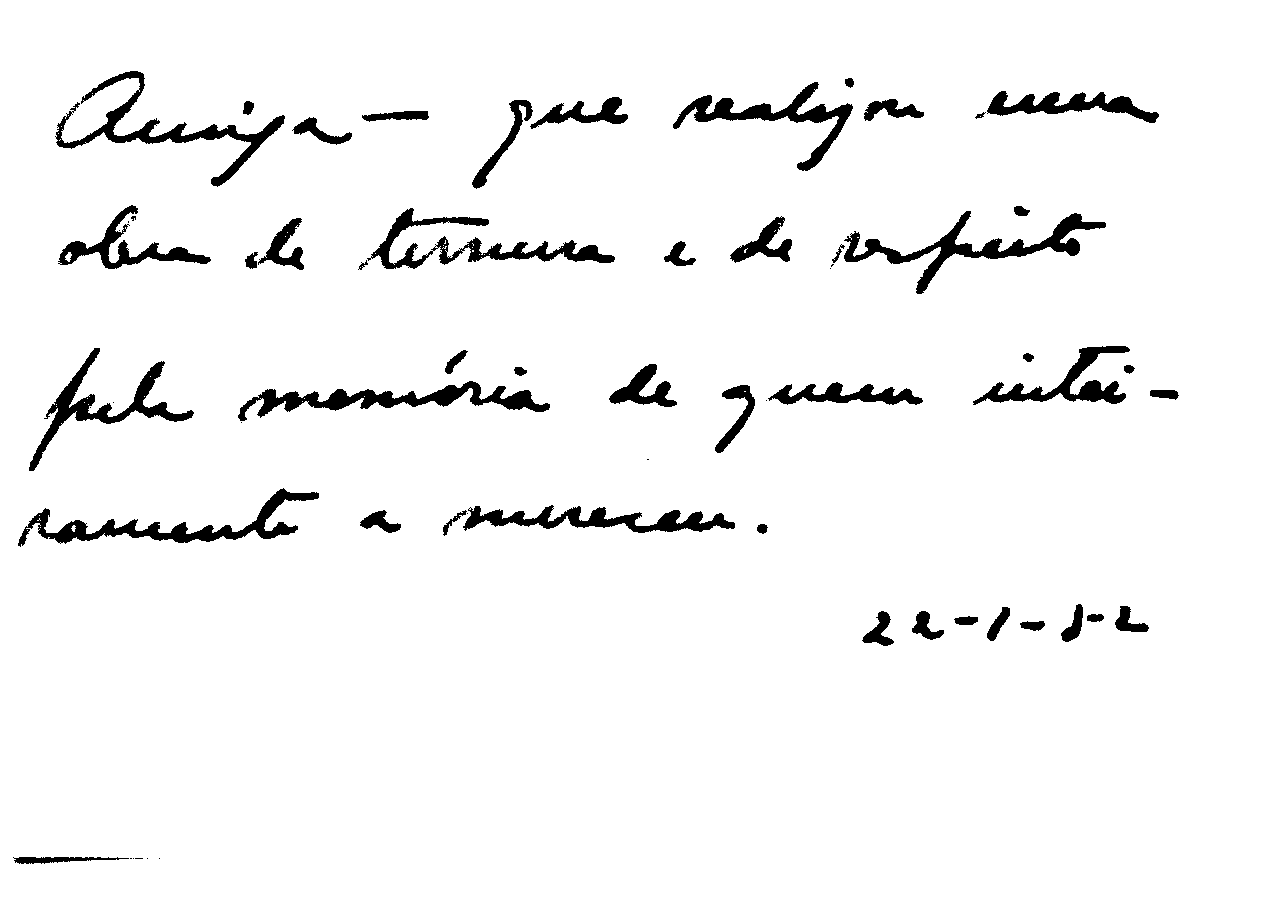 Amiga — que realizou uma
obra de ternura e de respeito
pela memória de quem intei-
ramente a mereceu.
22-1-52